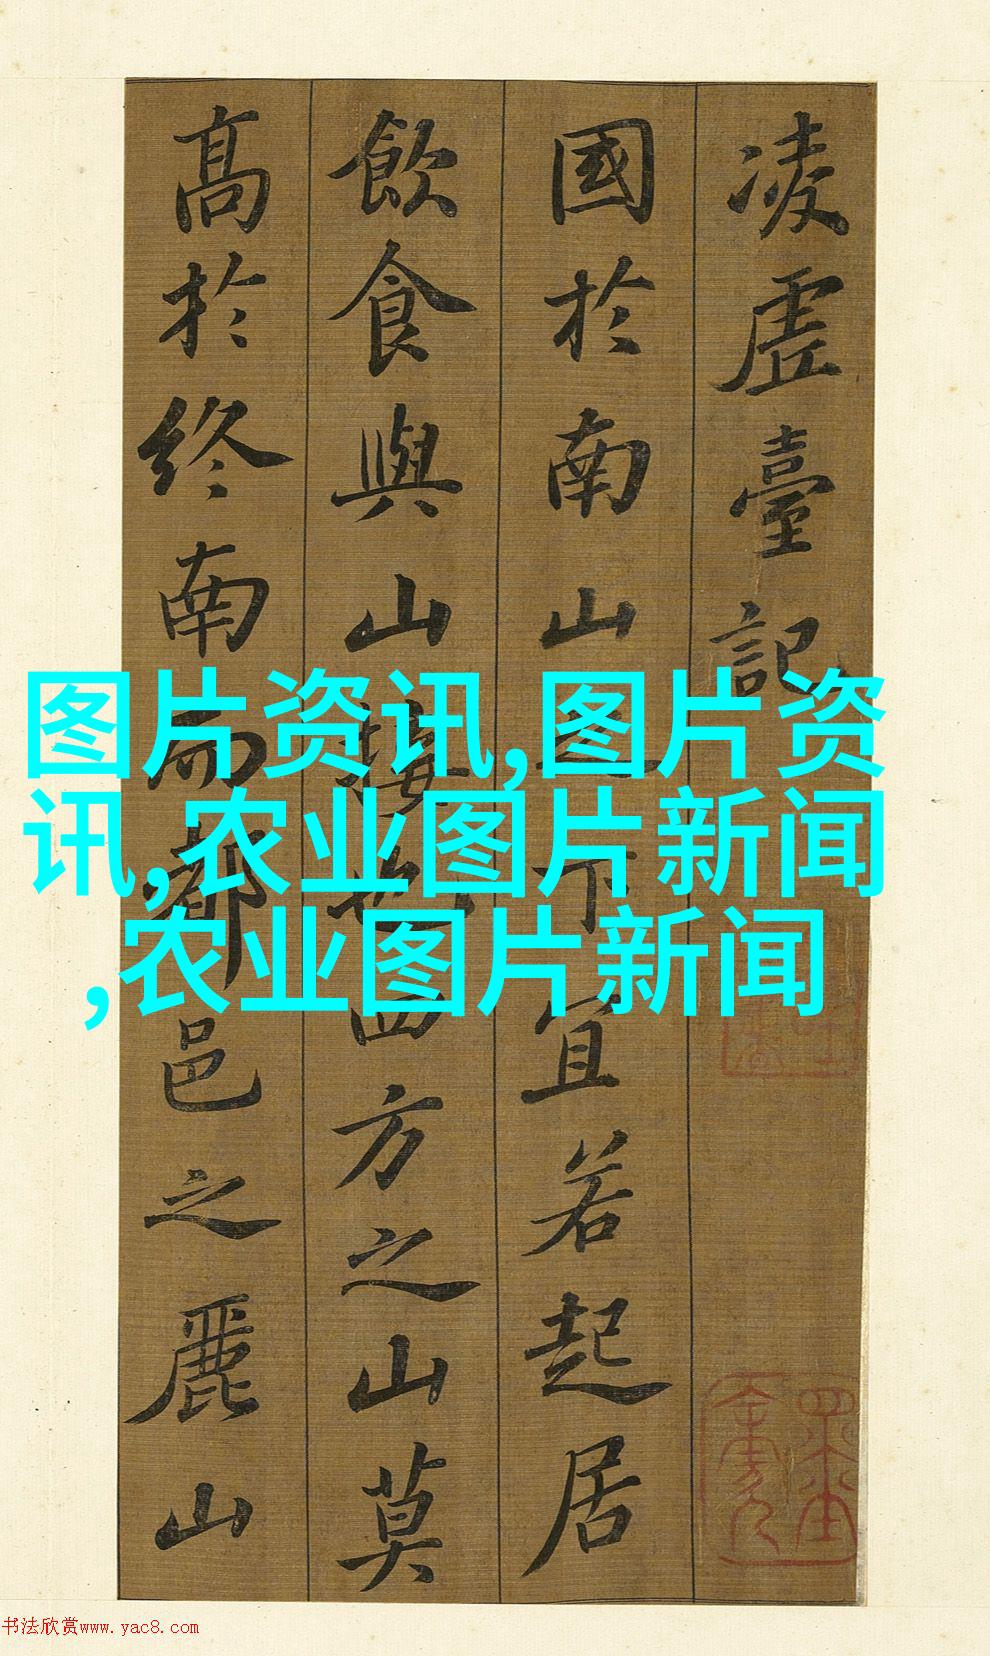 凌虛臺記
國於南山之下宜若起居
飲食與山接也四方之山莫
高於終南而都邑之麗山
图片资讯,图片资
讯,农业图片新闻
,农业图片新闻
书法欣赏www.yac8.com